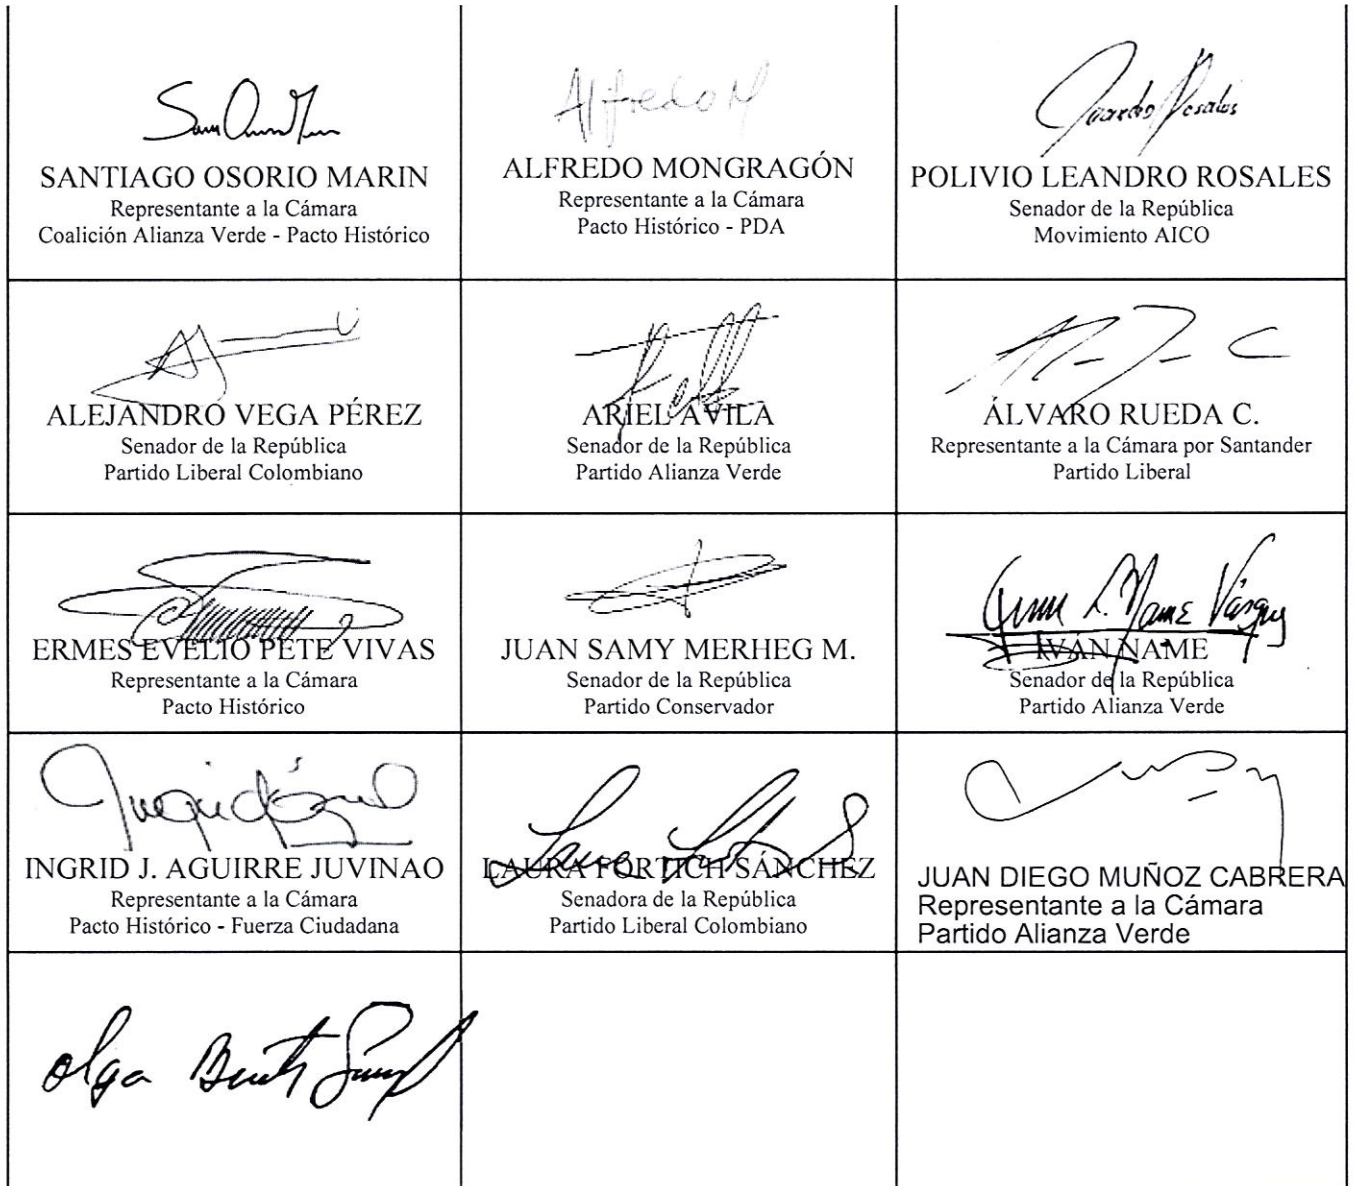 SANTIAGO OSORIO MARIN
Representante a la Cámara
Coalición Alianza Verde - Pacto Histórico
Alfredo M
ALFREDO MONGRAGÓN
Representante a la Cámara
Pacto Histórico - PDA
Rosales
POLIVIO LEANDRO ROSALES
Senador de la República
Movimiento AICO
ALEJANDRO VEGA PÉREZ
Senador de la República
Partido Liberal Colombiano
ARIEL AVILA
Senador de la República
Partido Alianza Verde
ÁLVARO RUEDA C.
Representante a la Cámara por Santander
Partido Liberal
ERMES EVELIO PETE VIVAS
Representante a la Cámara
Pacto Histórico
JUAN SAMY MERHEG M.
Senador de la República
Partido Conservador
Name Vásquez
IVÁN NAME
Senador de la República
Partido Alianza Verde
INGRID J. AGUIRRE JUVINAO
Representante a la Cámara
Pacto Histórico - Fuerza Ciudadana
LAURA FORTICH SÁNCHEZ
Senadora de la República
Partido Liberal Colombiano
JUAN DIEGO MUÑOZ CABRERA
Representante a la Cámara
Partido Alianza Verde
Olga